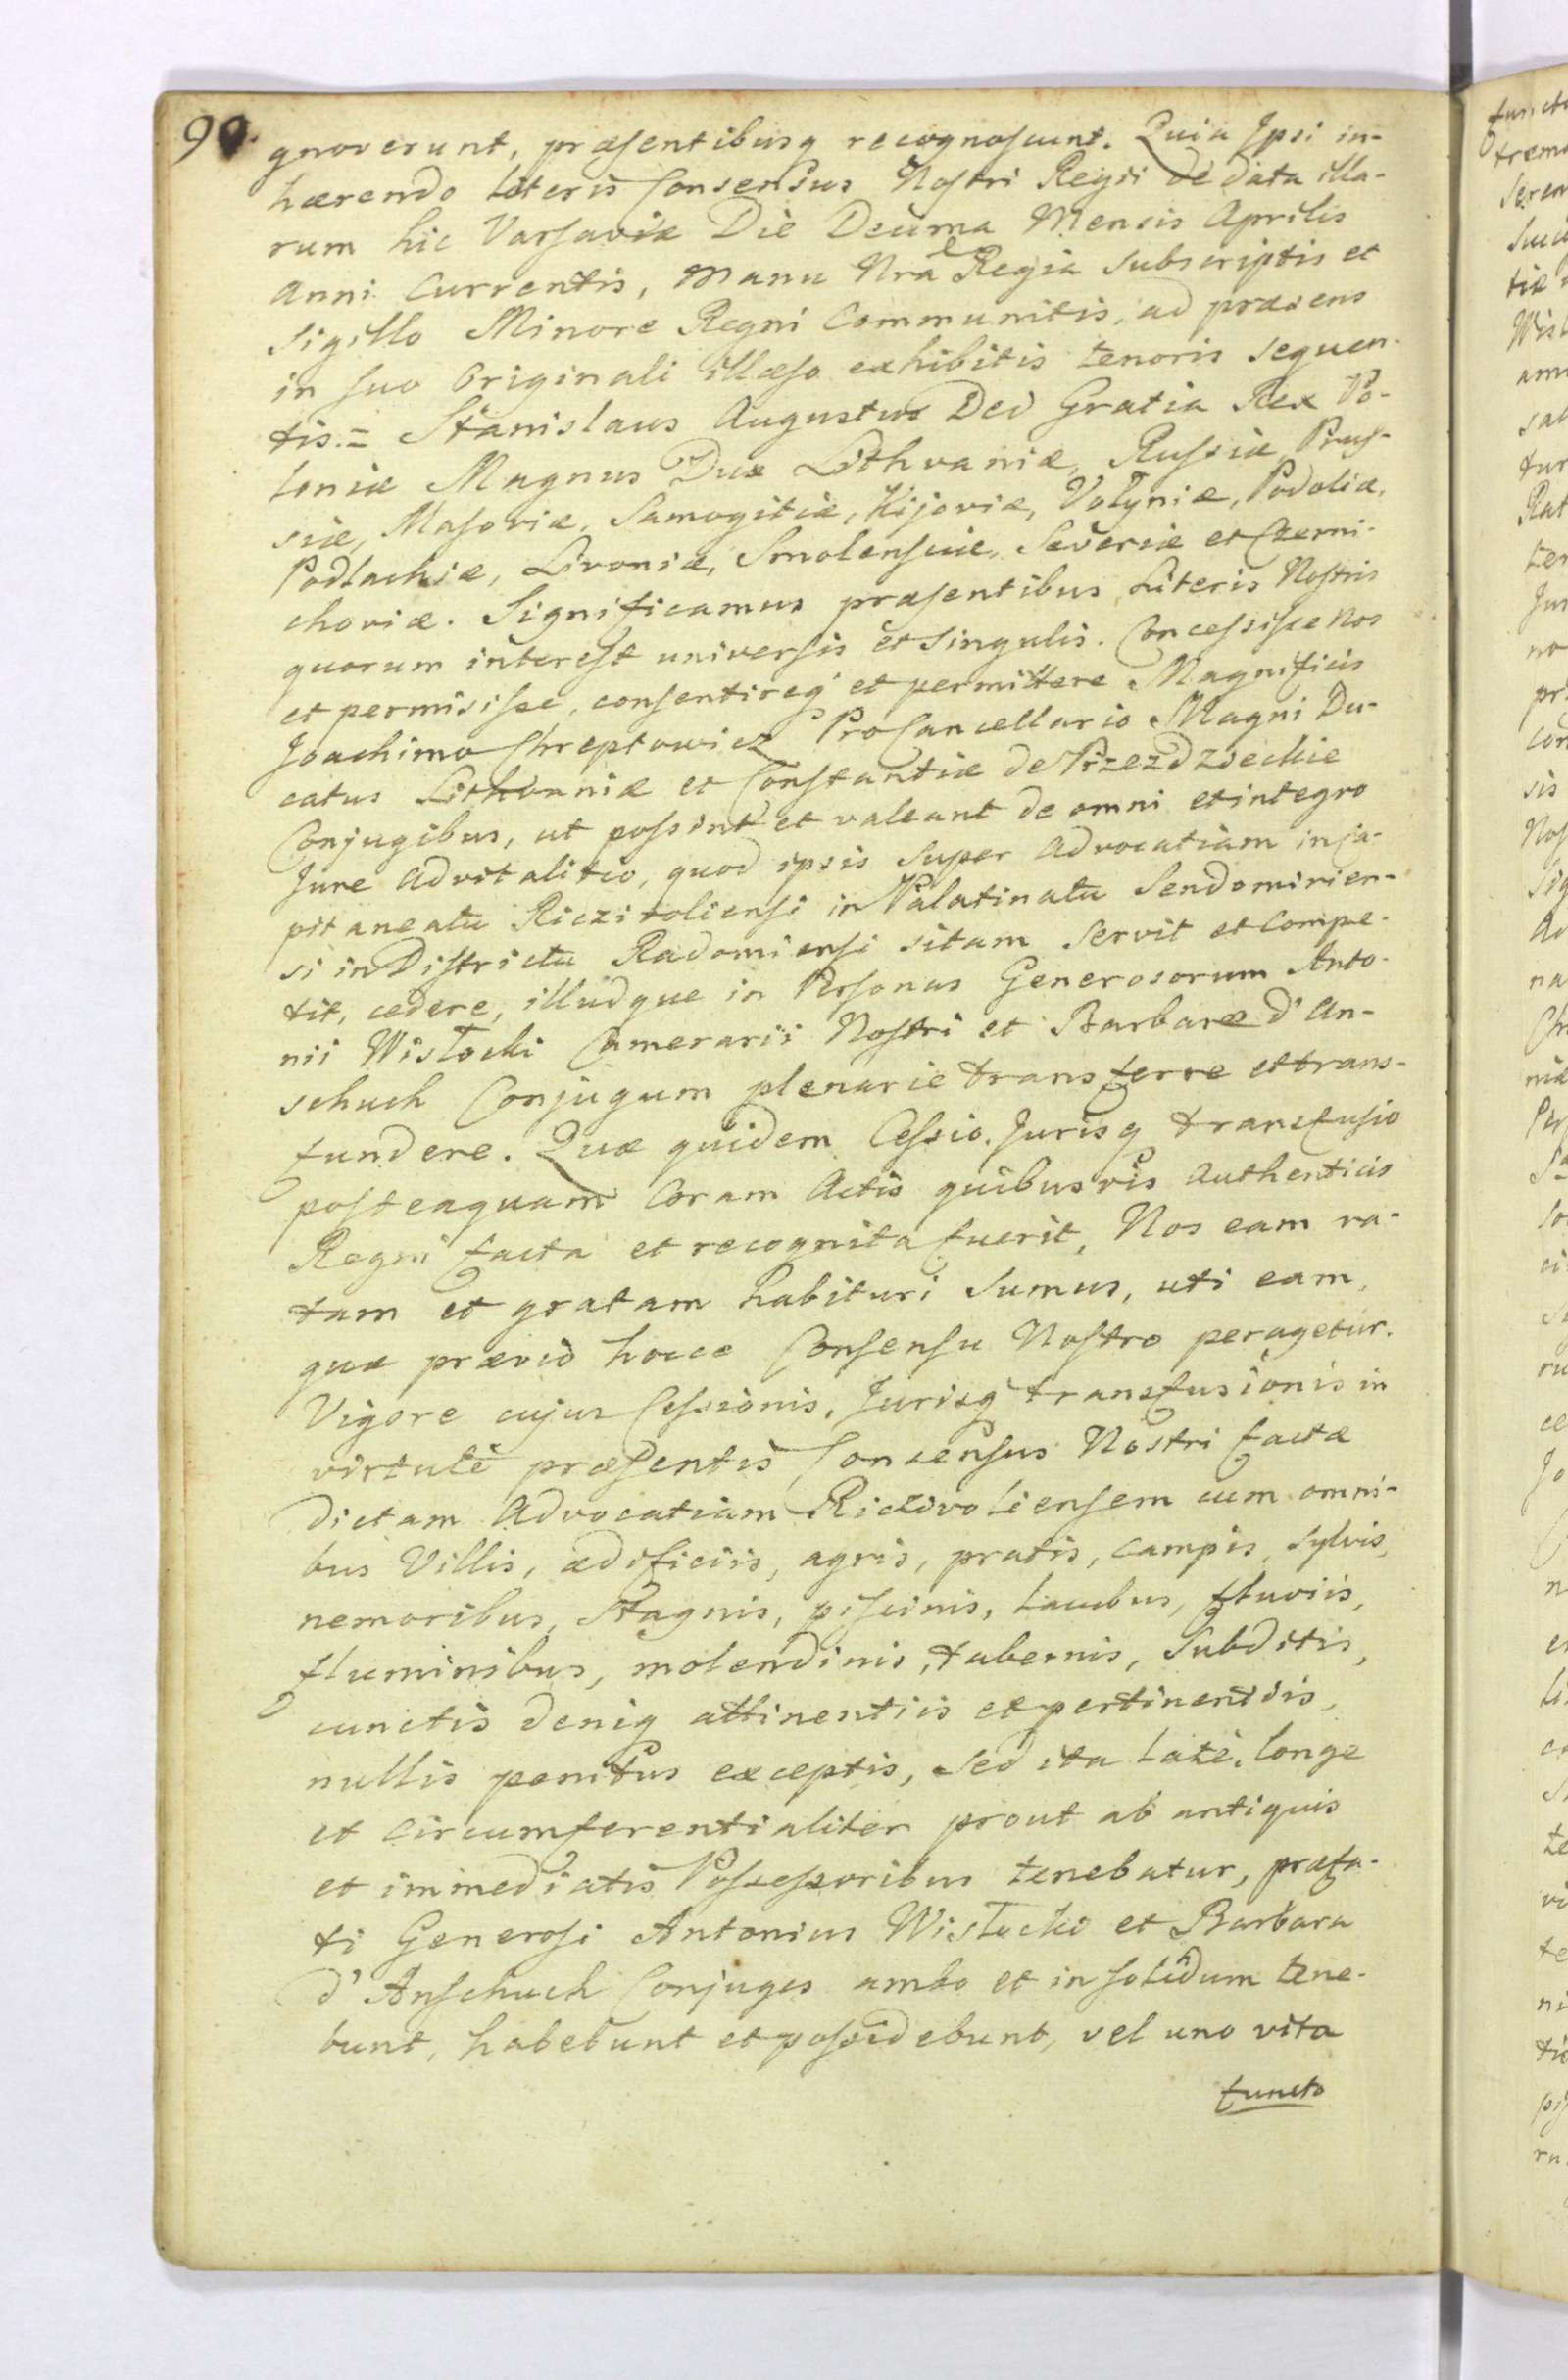 90.
gnoverunt, præsentibusq recognoscunt. Quia Ipsi in-
hærendo literis Consensus Nostri Regii de data illa-
rum hic Varsaviæ Die Decima Mensis Aprilis
Anni Currentis, Manu Nra Regia subscriptis et
Sigillo Minore Regni Communitis, ad præsens
in suo Originali illæso exhibitis tenoris sequen-
tis.= Stanislaus Augustus Dei Gratia Rex Po-
loniæ Magnus Dux Lithvaniæ, Russiæ, Prus-
siæ, Masoviæ, Samogitiæ, Kijoviæ, Volyniæ, Podoliæ,
Podlachiæ, Livoniæ, Smolensciæ, Severiæ et Czerni-
choviæ. Significamus præsentibus Literis Nostris
quorum interest universis et singulis. Concessisse Nos
et permisisse, consentireq et permittere Magnificis
Joachimo Chreptowicz ProCancellario Magni Du-
catus Lithvaniæ et Constantiæ de Przezdzieckie
Conjugibus, ut possint et valeant de omni et integro
Jure Advitalitio, quod ipsis super Advocatiam in Ca-
pitaneatu Riczivoliensi in Palatinatu Sendomirien-
si in Districtu Radomiensi sitam servit et compe-
tit, cedere, illudque in Personas Generosorum Anto-
nii Wisłocki Camerarii Nostri et Barbaræ d' An-
schuch Conjugum plenarie transferre et trans-
fundere. Quæ quidem Cessio. Jurisq transfusio
posteaquam Coram Actis quibusvis Authenticis
Regni facta et recognita fuerit, Nos eam ra-
tam et gratam habituri sumus, uti eam,
quæ prævio hocce Consensu Nostro peragetur.
Vigore cujus Cessionis, Jurisq transfusionis in
virtute præsentis Consensus Nostri factæ
dictam Advocatiam Riczivoliensem cum omni-
bus Villis, ædificiis, agris, pratis, campis, sylvis,
nemoribus, Stagnis, piscinis, lacubus, fluviis,
fluminibus, molendinis, tabernis, Subditis,
cunctis deniq attinentiis et pertinentiis,
nullis penitus exceptis, sed ita late, longe
et circumferentialiter prout ab antiquis
et immediatis Possessoribus tenebatur, præfa-
ti Generosi Antonius Wisłocki et Barbara
d' Anschuch Conjuges ambo et in solidum tene-
bunt, habebunt et possidebunt, vel uno vita
functo